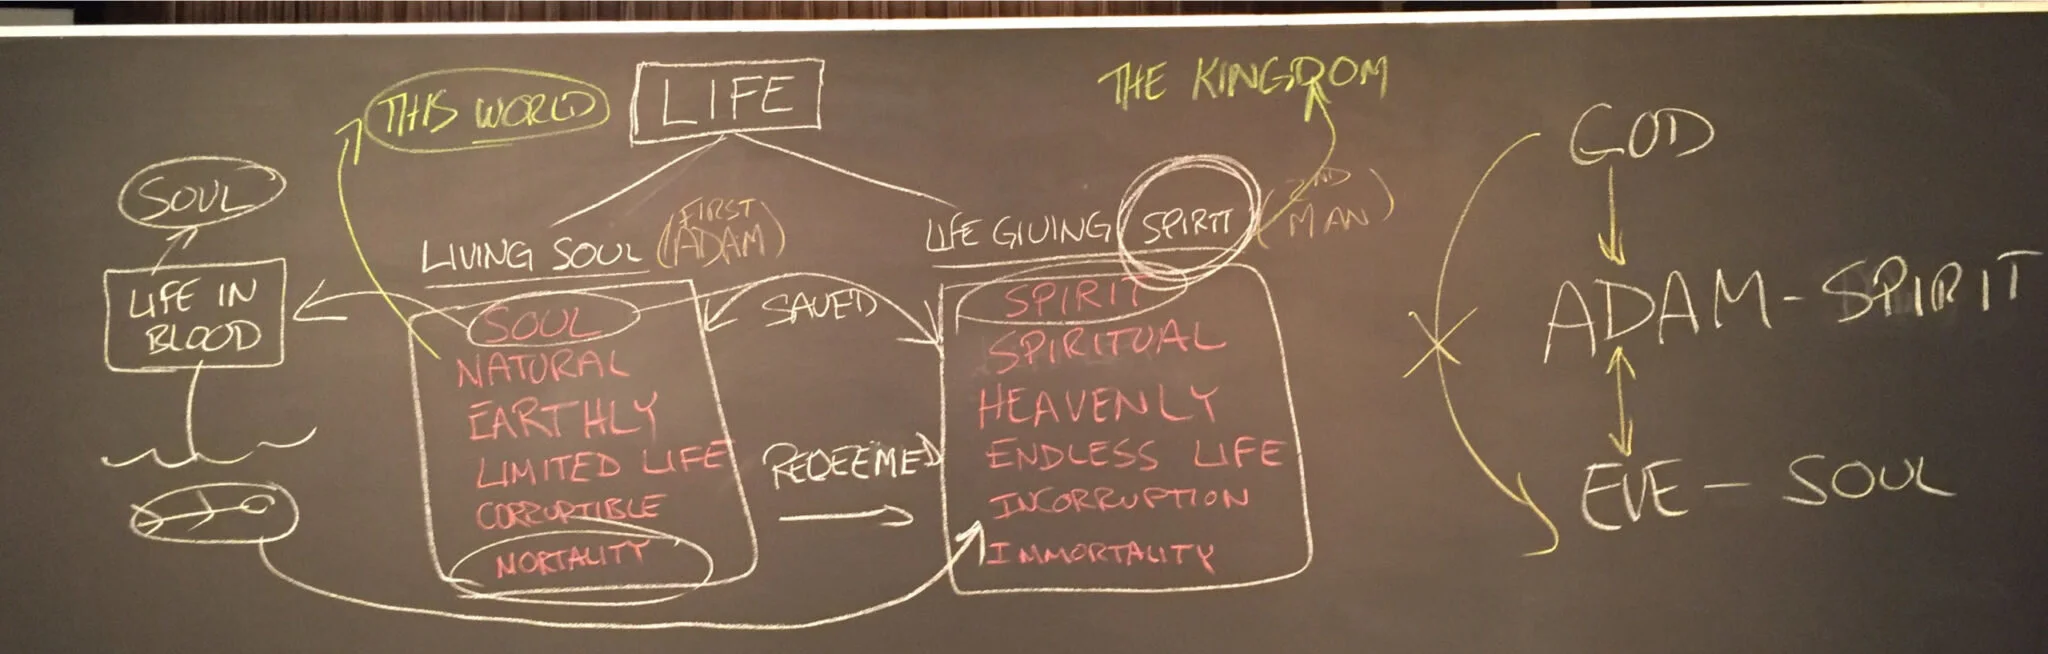 THIS WORLD
LIFE
THE KINGDOM
SOUL
LIFE IN
BLOOD
LIVING SOUL (FIRST
ADAM)
SOUL
NATURAL
EARTHLY
LIMITED LIFE
CORRUPTIBLE
MORTALITY
SAVED
REDEEMED
LIFE GIVING SPIRIT (2ND
MAN)
SPIRIT
SPIRITUAL
HEAVENLY
ENDLESS LIFE
INCORRUPTION
IMMORTALITY
GOD
ADAM - SPIRIT
EVE - SOUL